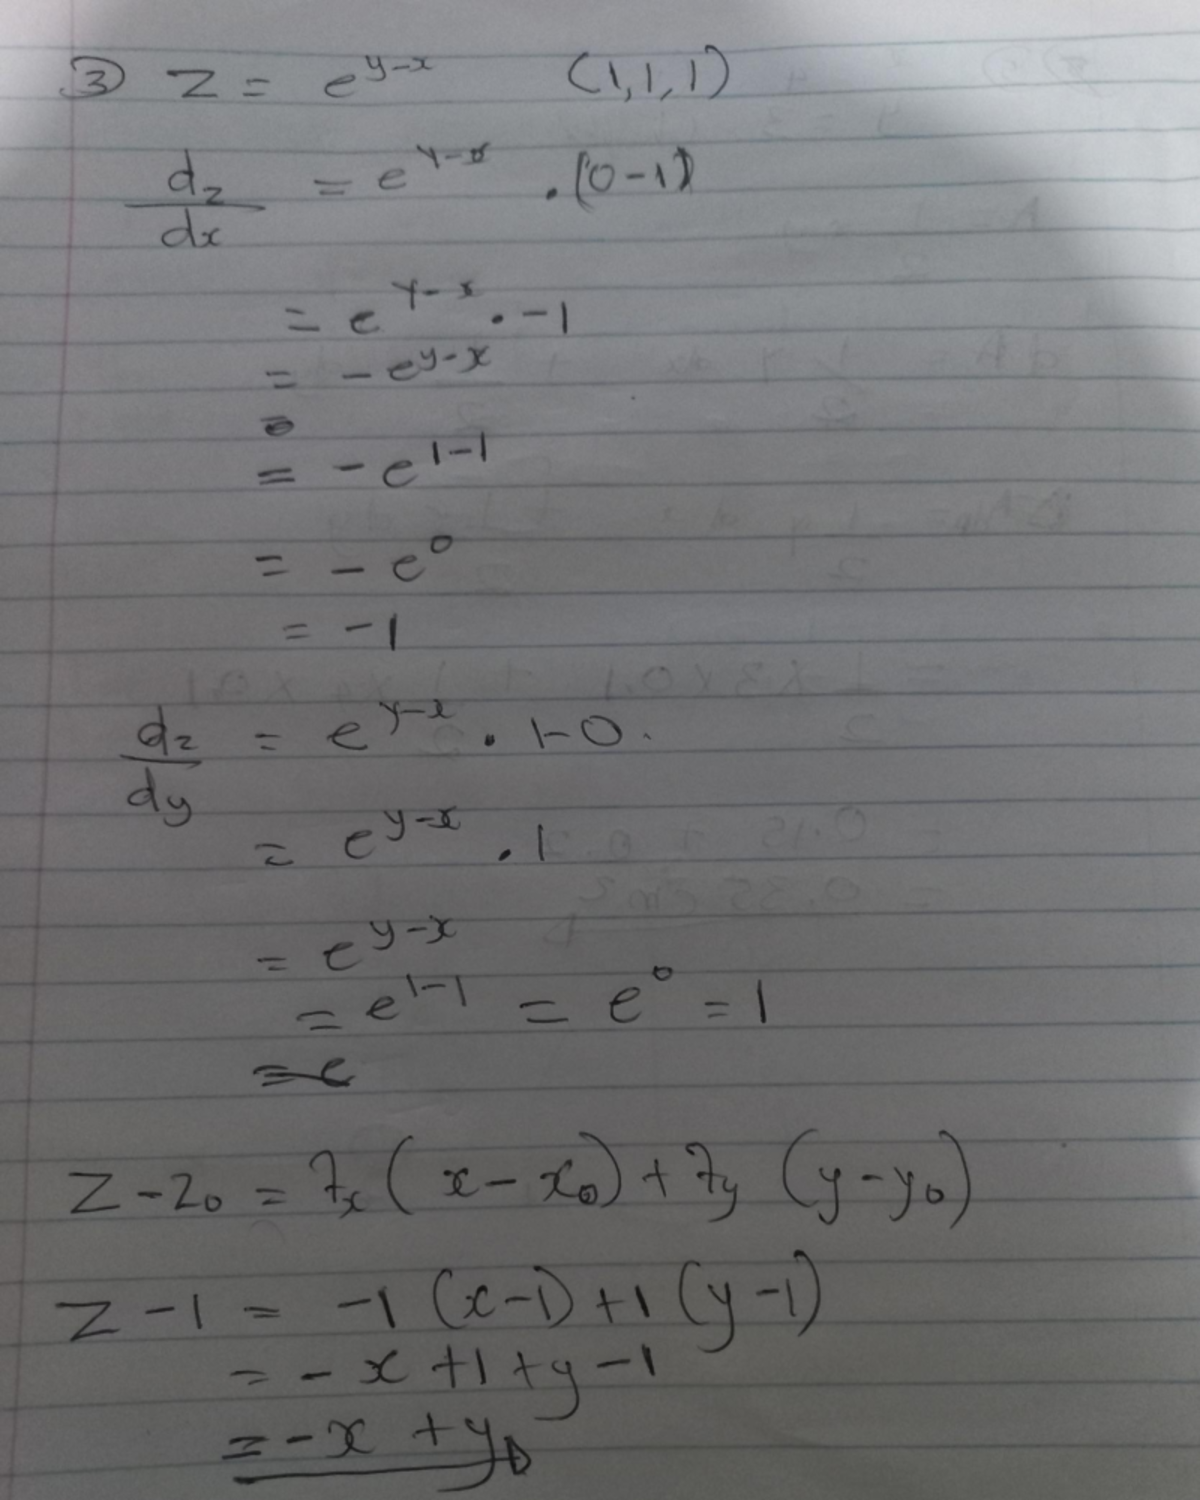 ③ Z = e^{y-x} (1,1,1)
dz/dx = e^{y-x} . (0-1)
= e^{y-x} . -1
= -e^{y-x}
= -e^{1-1}
= -e^0
= -1
dz/dy = e^{y-x} . 1-0.
= e^{y-x} . 1
= e^{y-x}
= e^{1-1} = e^0 = 1
Z - z_0 = f_x (x - x_0) + f_y (y - y_0)
Z - 1 = -1 (x-1) + 1 (y-1)
= -x + 1 + y - 1
= -x + y